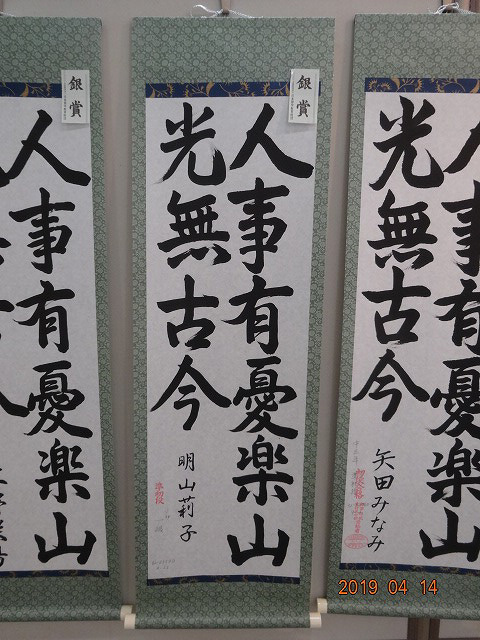 銀賞
人事有憂楽山
光無古今
明山莉子
準初段
銀賞
人事有憂楽山
人事有憂楽山
光無古今
矢田みなみ
2019 04 14